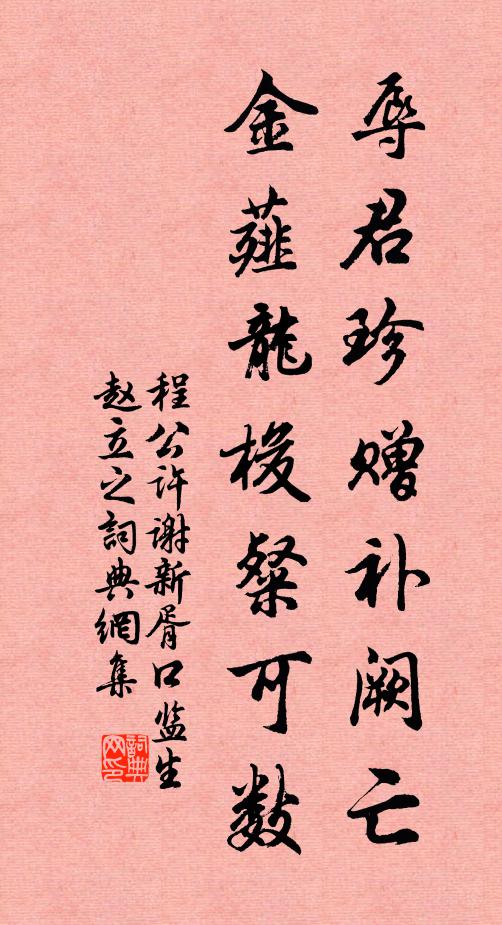 辱君珍赠补阙亡
金薤龍梭粲可数
程公许谢新胥口监生
赵立之詞典網集
詞典
网印